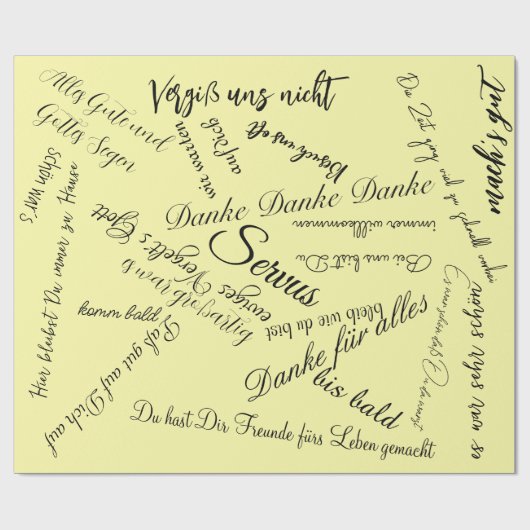 Alles Gute und
Gottes Segen
Vergiß uns nicht
wir warten
auf Dich
Besuch uns oft
Die Zeit ging viel zu schnell vorbei
mach's gut
Schön war's
Hier bleibst Du immer zu Hause
Danke Danke Danke
immer willkommen
Bei uns bist Du
Servus
ewiges Vergelt's Gott
s'war großartig
komm bald
Paß gut auf Dich auf
bleib wie du bist
Danke für alles
bis bald
Es war schön daß Du da warst
so war sehr schön
Du hast Dir Freunde fürs Leben gemacht